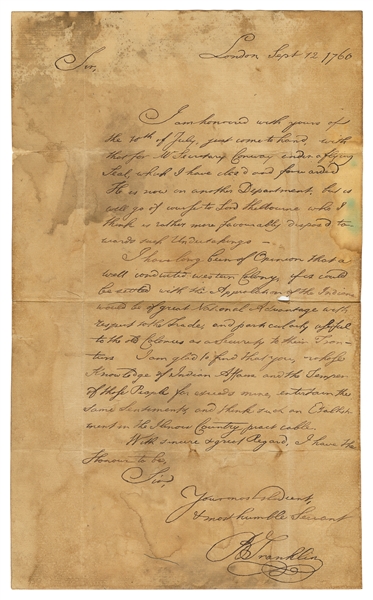 London Sept 12 1760
Sir,
I am honored with yours of
the 10th of July, just come to hand, with
that for Mr Secretary Conway under a flying
Seal, which I have clos'd and forwarded
He is now in another Department, but it
will go of course to Lord Shelbourne who I
think is rather more favourably dispos'd to-
wards such Undertakings —
I have long been of Opinion that a
well conducted western Colony, if it could
be settled with the Approbation of the Indians
would be of great National Advantage with
respect to the Trade, and particularly useful
to the old Colonies as a Security to their Fron-
tiers I am glad to find that you, whose
Knowledge of Indian Affairs and the Temper
of those People far exceeds mine, entertain the
same Sentiments, and think such an Establish-
ment in the Illinois Country practicable.
With sincere & great Regard, I have the
Honour to be,
Sir,
Your most obedient
& most humble Servant
B Franklin